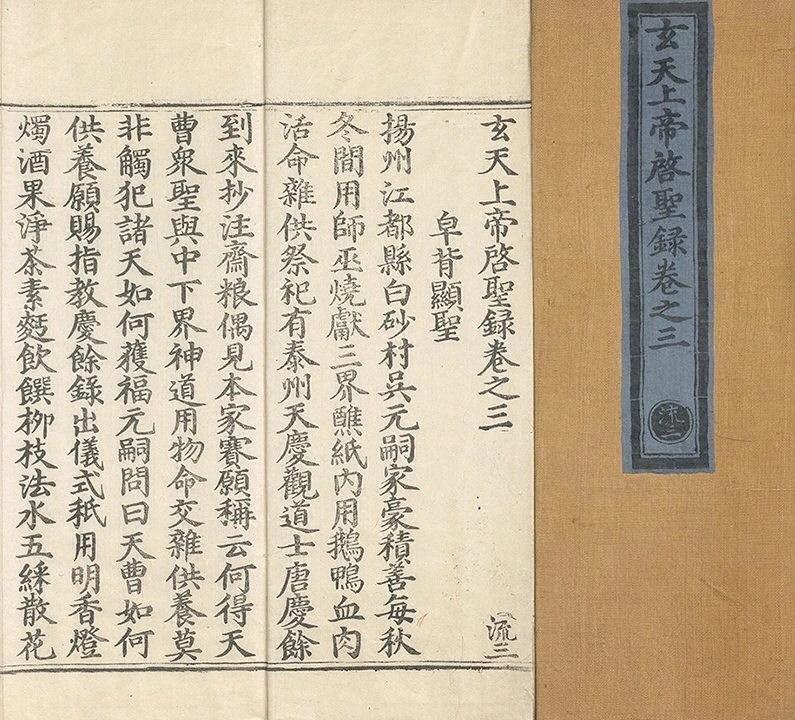 玄天上帝啓聖録卷之三
流三
玄天上帝啓聖録卷之三
流三
皁背顯聖
揚州江都縣白砂村吳元嗣家豪積善每秋
冬間用師巫燒獻三界醮紙内用鵝鴨血肉
活命雜供祭祀有泰州天慶觀道士唐慶餘
到來抄注齋粮偶見本家賽願稱云何得天
曹衆聖與中下界神道用物命交雜供養莫
非觸犯諸天如何獲福元嗣問曰天曹如何
供養願賜指教慶餘錄出儀式秖用明香燈
燭酒果淨茶素麪飲饌柳枝法水五綵散花